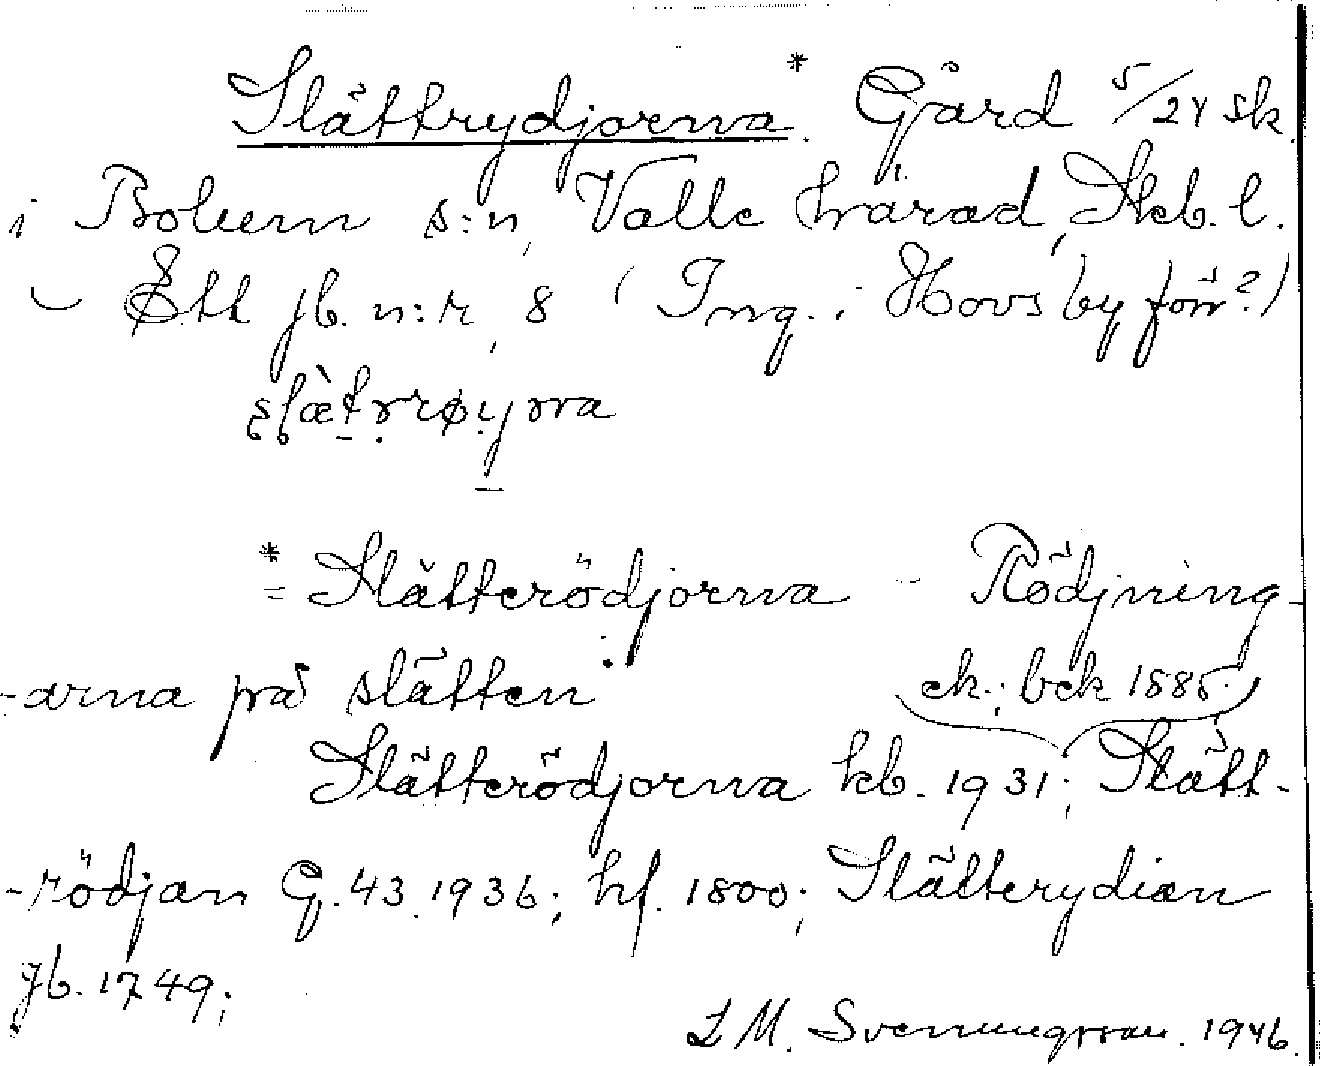 Slättrydjorna.* Gård 5/24 sk
i Bolum s:n, Valle härad, Skb. l.
Ett jb. n:r, 8 (Ing. i Hovs by förr?)
* = Slätterödjorna - Rödjning-
-arna på slätten ek.; bek 1885.
Slätterödjorna kb. 1931; Slätt-
-rödjan G. 43. 1936; hf. 1800; Slätterydian
jb. 1749;
L M. Svenungsson. 1946.